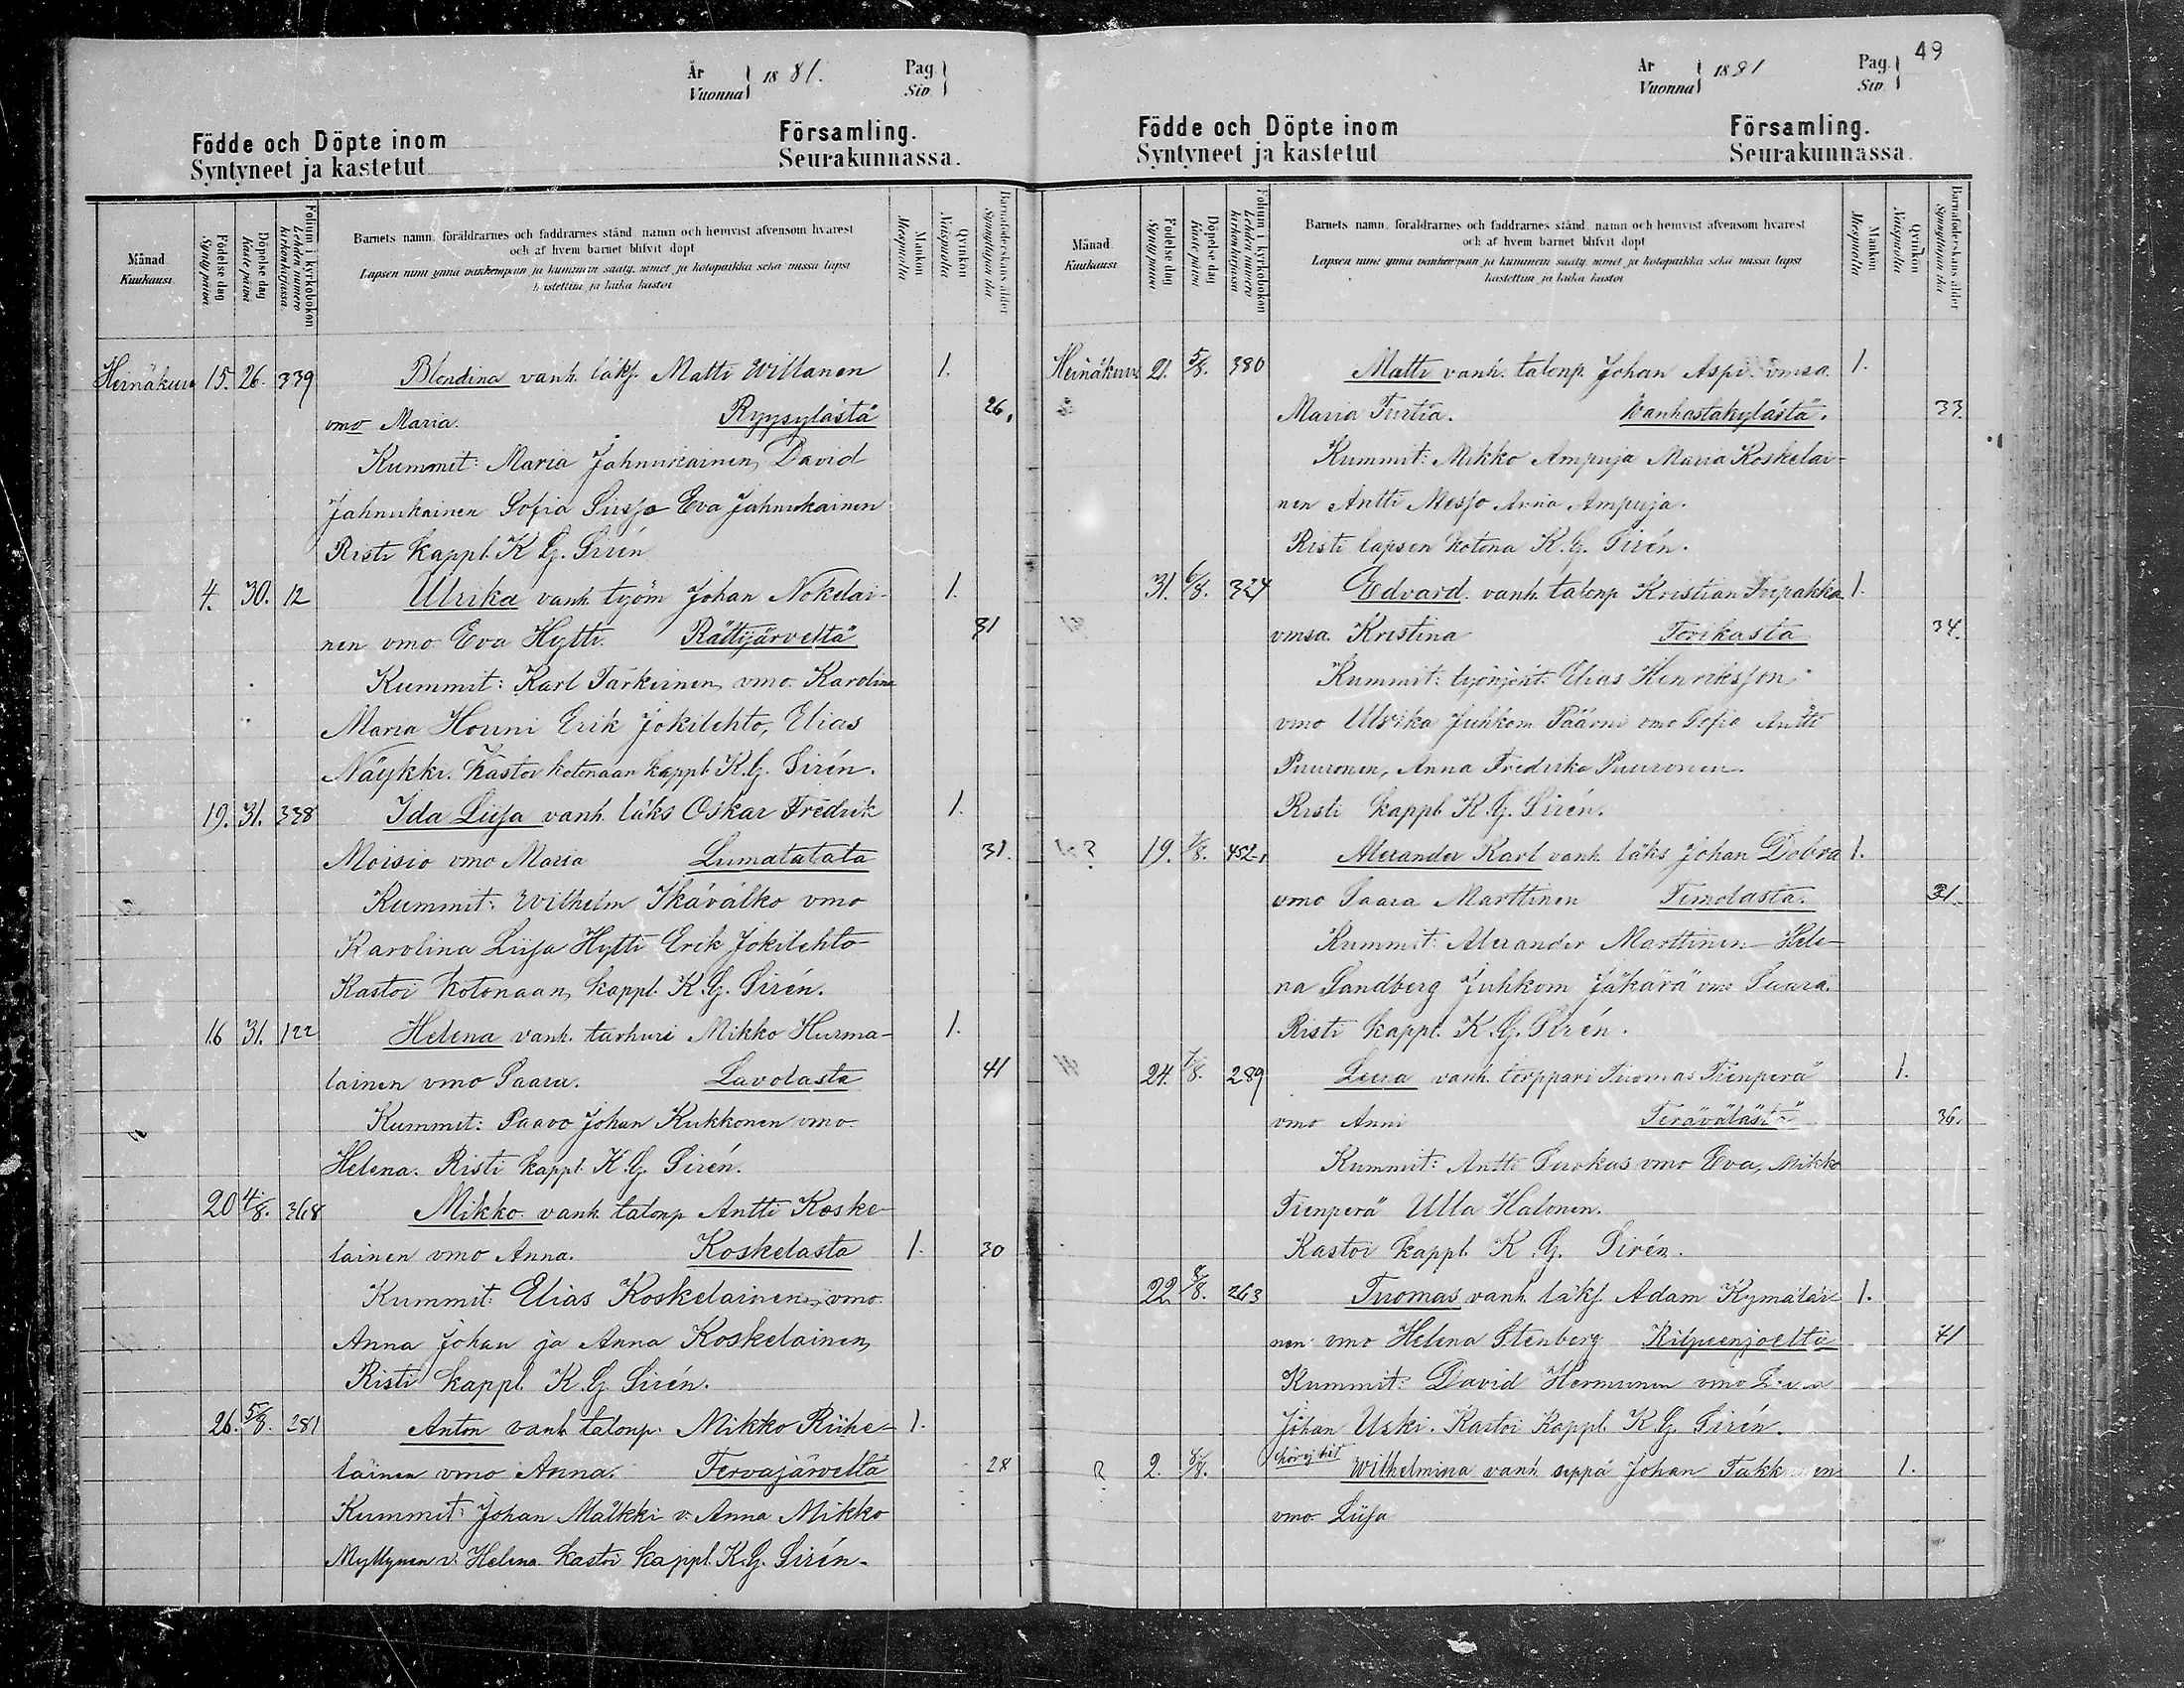 År
Vuonna
1881.
Pag.
Siv.
Födde och Döpte inom
Församling.
Syntyneet ja kastetut
Seurakunnassa.
Månad
Kuukausi
Födelse dag
Synty päivä
Döpelse dag
Kaste päivä
Folium i kyrkoboken
Lehden numero
kirkonkirjassa.
Barnets namn, föräldrarnes och faddrarnes stånd, namn och hemvist äfvensom hvarest
och af hvem barnet blifvit döpt
Mankön
Miespuolta
Qvinkön
Naispuolta
Barnaföderskans ålder
Synnyttäjän ikä
Heinäkuu 15. 26. 339 Blondina vanh. läks. Matti Willanen 1.
vmo Maria. Ryysylästä 26.
Kummit: Maria Jahnukainen, David
Jahnukainen Sofia Susso Eva Jahnukainen
Risti Kappl. K. G. Sirén
4. 30. 12 Ulrika vanh. työm Johan Nokelai- 1.
nen vmo Eva Hytti. Rättijärveltä 31
Kummit: Karl Tarkiinen, vmo. Karolina
Maria Houni Erik Jokilehto, Elias
Näykki. Kastoi kotonaan kappl. K. G. Sirén.
19. 31. 338 Ida Liisa vanh. läks Oskar Fredrik 1.
Moisio vmo Maria Lumatalata 31.
Kummit: Wilhelm Ikävälko vmo
Karolina Liisa Hytti Erik Jokilehto
Kastoi kotonaan, kappl. K. G. Sirén.
16 31. 122 Helena vanh. tarhuri Mikko Hurma- 1.
lainen vmo Paara. Lavolasta 41
Kummit: Paavo Johan Kukkonen vmo
Helena. Risti kappl. K. G. Sirén.
20 4/8. 368 Mikko vanh. talonp Antti Koske-
lainen vmo Anna. Koskelasta 1. 30
Kummit: Elias Koskelainen, vmo
Anna Johan ja Anna Koskelainen,
Risti kappl. K. G. Sirén.
26. 5/8. 281 Anton vanh. talonp. Mikko Riihe- 1.
läinen vmo Anna. Tervajärveltä 28
Kummit: Johan Mälkki v. Anna Mikko
Myllynen v. Helena. Kastoi kappl. K. G. Sirén.
49
År
Vuonna
1881
Pag.
Siv.
Födde och Döpte inom
Församling.
Syntyneet ja kastetut
Seurakunnassa.
Månad
Kuukausi
Födelse dag
Synty päivä
Döpelse dag
Kaste päivä
Folium i kyrkoboken
Lehden numero
kirkonkirjassa
Barnets namn, föräldrarnes och faddrarnes stånd, namn och hemvist äfvensom hvarest
och af hvem barnet blifvit döpt
Mankön
Miespuolta
Qvinkön
Naispuolta
Barnaföderskans ålder
Synnyttäjän ikä
Heinäkuu 21. 5/8. 380 Matti vanh. talonp. Johan Aspi vmsa. 1.
Maria Turtia. Wanhastakylästä. 33
Kummit: Mikko Ampuja Maria Koskelai-
nen Antti Messo Anna Ampuja.
Risti lapsen kotona K. G. Sirén.
31. 6/8. 324 Edvard. vanh. talonp Kristian Tripakka 1.
vmsa. Kristina Torikasta 34.
Kummit: työnjoht. Elias Henriksson
vmo Ulrika Juhkom Päärni vmo Sofia Antti
Puuronen, Anna Fredrika Puuronen.
Risti kappl. K. G. Sirén.
? 19. 7/8. 452. Alexander Karl vanh. läks Johan Dobra 1.
vmo Saara Marttinen Timolasta. 31.
Kummit: Alexander Marttinen Hele-
na Sandberg Juhkom Jäkärä vmo Saara.
Risti kappl. K. G. Sirén.
24. 7/8. 289 vanh. torppari Tuomas Tienperä 1.
vmo Anni Terävälästä 36.
Kummit: Antti Suokas vmo Eva, Mikko
Tienperä Ulla Halonen.
Kastoi kappl. K. G. Sirén.
22. 8/8. 263 Tuomas vanh. läks. Adam Kymäläi- 1.
nen vmo Helena Stenberg Kilpeenjoelta 41
Kummit: David Hermunen vmo
Johan Uski. Kastoi Kappl. K. G. Sirén.
? 2. 8/8. Wilhelmina vanh. seppä Johan 1.
vmo Liisa